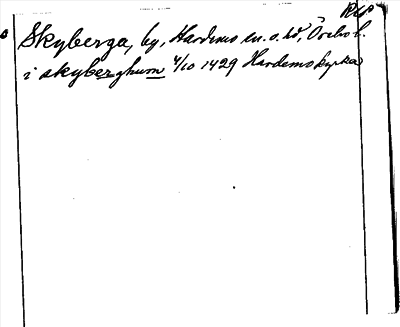 RAP
Skyberga, by, Hardems sn. o. hd, Örebro l.
i skyberghum 4/10 1429 Hardems kyrka